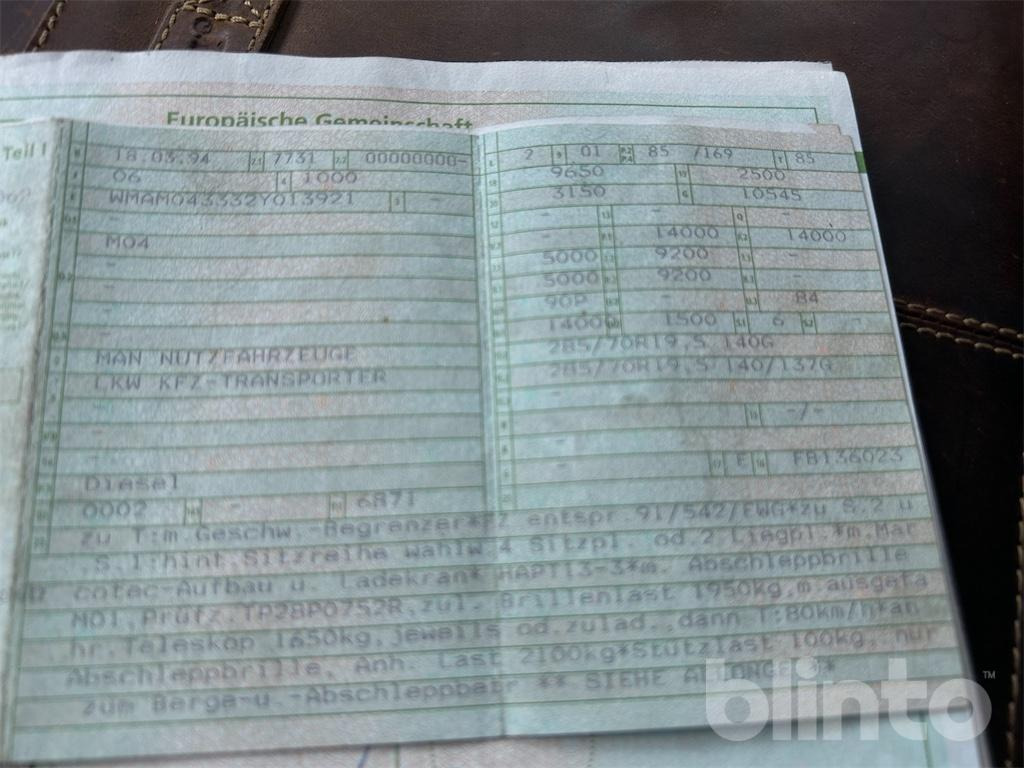 Europäische Gemeinschaft
Teil I
18.03.94 7731 00000000-
06 1000
WMAM043332Y013921 -
-
M04
-
-
-
-
MAN NUTZFAHRZEUGE
LKW KFZ-TRANSPORTER
-
-
-
Diesel
0002 - 6871
2 01 85 /169 85
9650 2500
3150 10545
- - -
- 14000 14000
5000 9200 -
5000 9200 -
90P - 84
14000 1500 6 -
285/70R19,5 140G
285/70R19,5 140/137G
-
- -/-
-
- E FB136023
zu T:m.Geschw.-Begrenzer*zz entspr.91/542/EWG*zu S.2 u
.S.1:hint.Sitzreihe wahlw.4 Sitzpl. od.2 Liegpl.*m.Mar
cotec-Aufbau u. Ladekran* m. Abschleppbrille
M01,Prüfz.TP28P0752R,zul. Brillenlast 1950kg,m.ausgefa
hr.Teleskop 1650kg,jeweils od.zulad.,dann T:80km/h*an
Abschleppbrille, Anh. Last 2100kg*Stützlast 100kg, nur
zum Berge-u.-Abschleppbetr ** SIEHE
blinto™